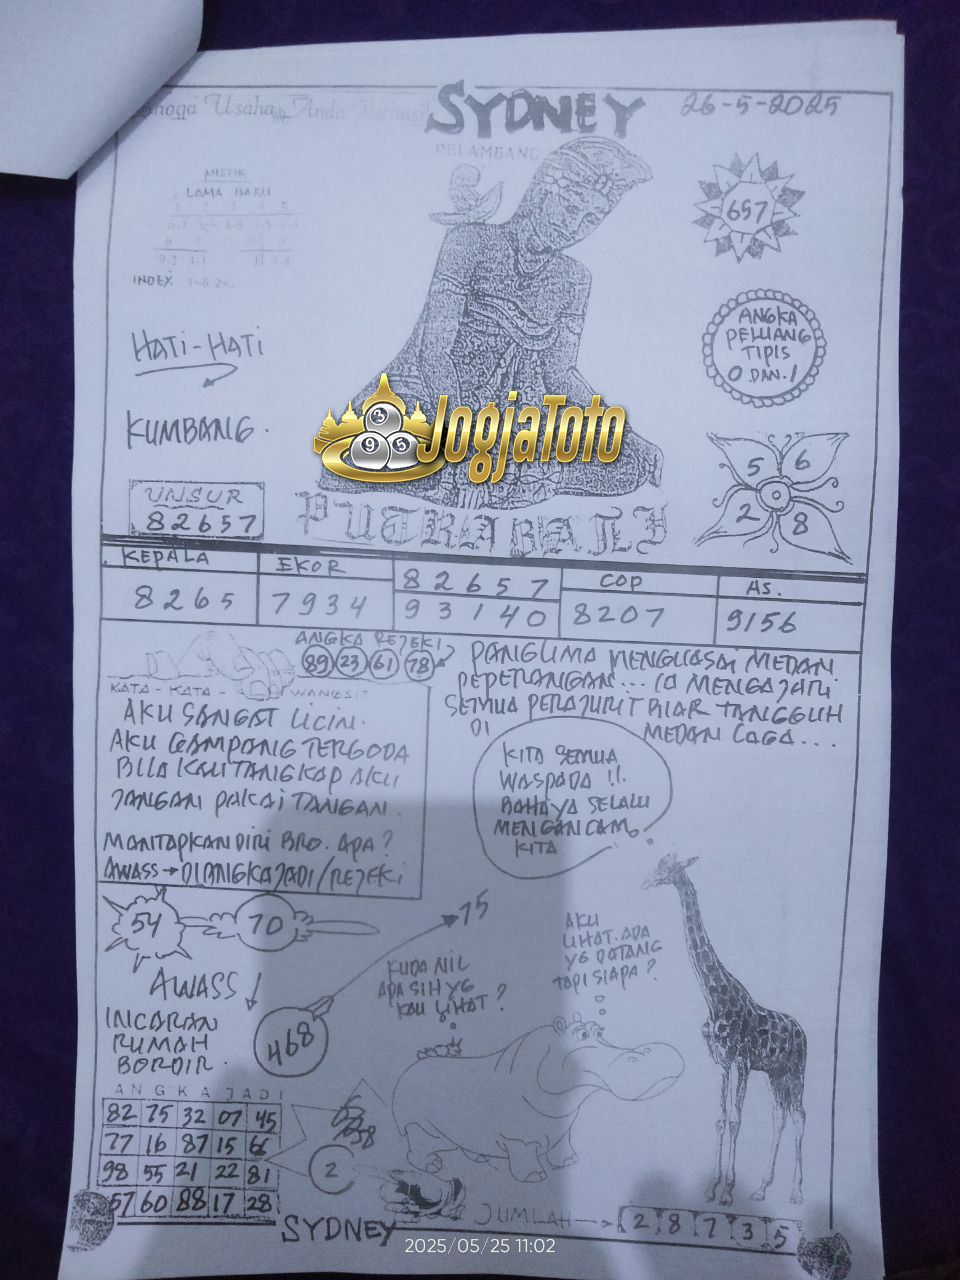 Semoga Usaha Anda Berhasil
SYDNEY
26-5-2025
PELAMBANG
MISTIK
LAMA BARU
INDEX
657
HATI-HATI
ANGKA
PELUANG
TIPIS
0 DAN. 1
KUMBANG.
JogjaToto
3
9 5
5 6
2 8
UNSUR
82657
PUTRA BALI
KEPALA
8265
EKOR
7934
82657
93140
COP
8207
AS.
9156
ANGKA REJEKI
89 23 61 78
KATA - KATA - WANGSIT
AKU SANGAT LICIN.
AKU GAMPANG TERGODA
BILA KAU TANGKAP AKU
JANGAN PAKAI TANGAN.
MANTAPKAN DIRI BRO. APA?
AWASS → DIANGKA JADI/REJEKI
PANGLIMA MENGUASAI MEDAN
PEPERANGAN... IA MENGAJARI
SEMUA PERAJURIT BIAR TANGGUH
DI MEDAN LAGA...
KITA SEMUA
WASPADA !!.
BAHAYA SELALU
MENGANCAM
KITA
54
70
75
AWASS!
468
INCARAN
RUMAH
BORDIR.
KUDA NIL
APA SIH YG
KAU LIHAT?
AKU
LIHAT. ADA
YG DATANG
TAPI SIAPA?
ANGKA JADI
82 75 32 07 45
77 16 87 15 66
98 55 21 22 81
57 60 88 17 28
2
SYDNEY
JUMLAH → 2 8 7 3 5
2025/05/25 11:02